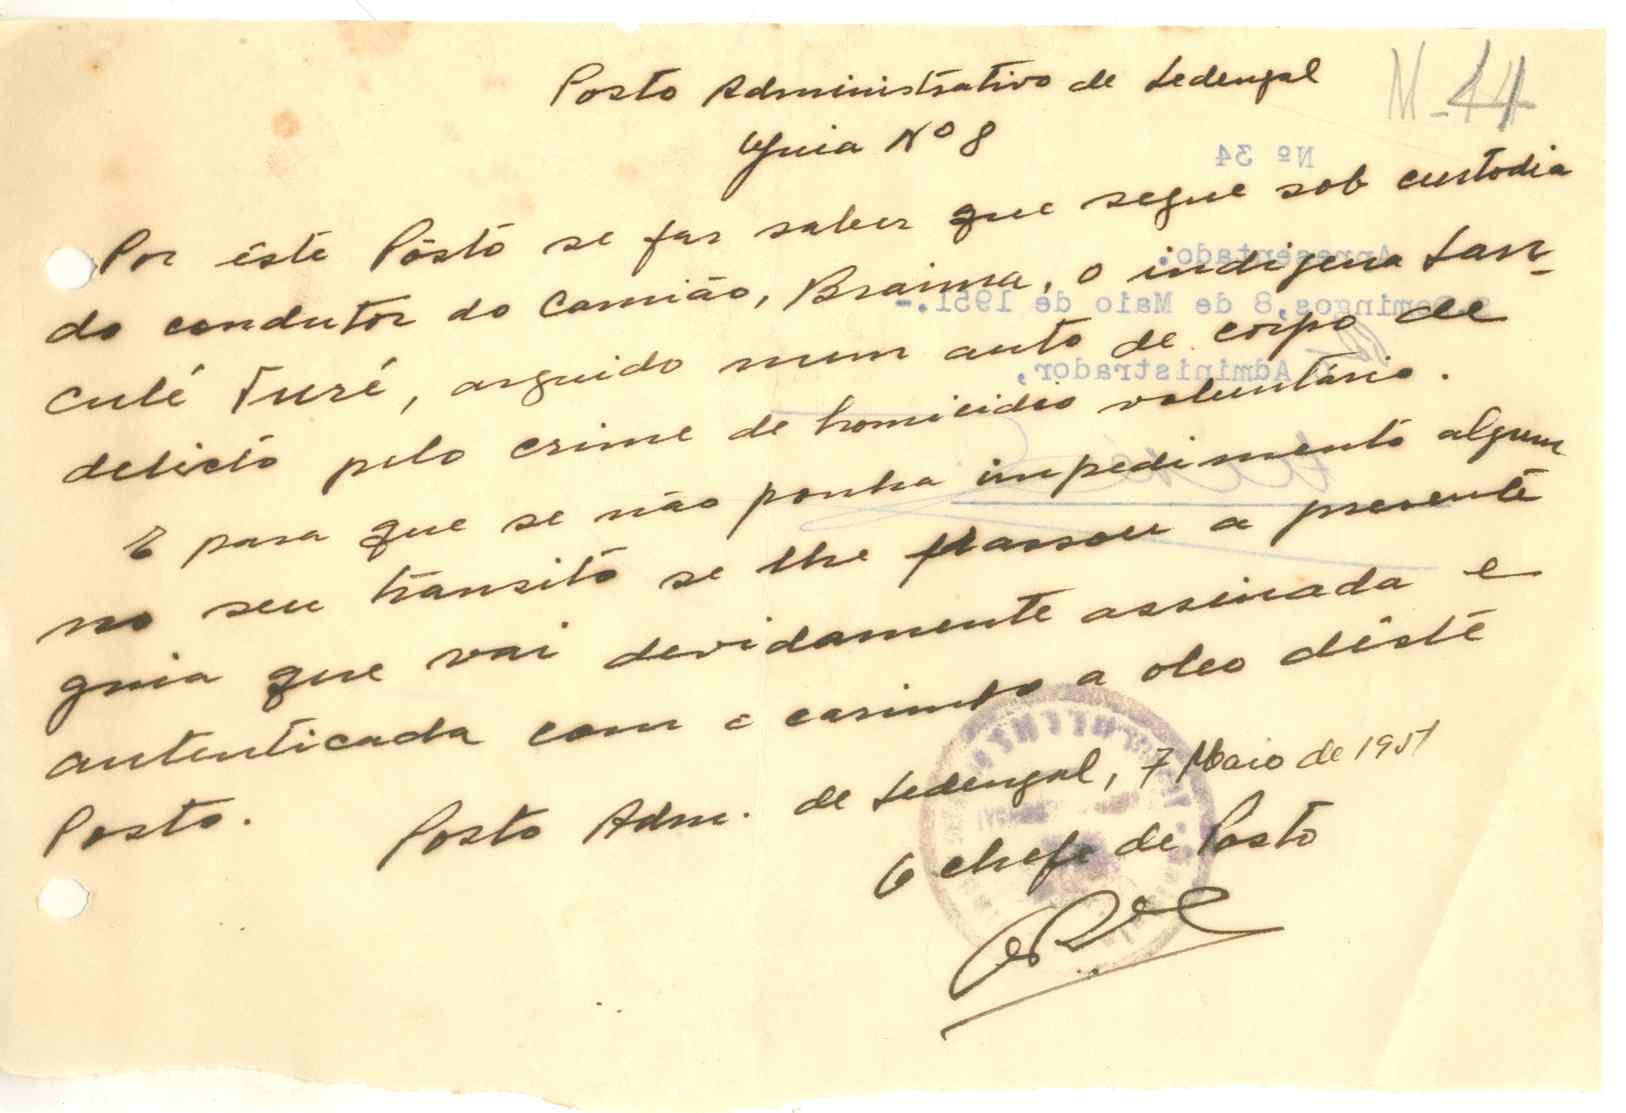 Posto Administrativo de Sedengal
N-44
Guia Nº 8
Nº 34
Por êste Pôsto se faz saber que segue sob custodia
Apresentado.
do condutor do camião, Braima, o indigena San-
S. Domingos, 8 de Maio de 1951.-
culé Turé, arguido num auto de corpo de
O Administrador,
delicto pelo crime de homicidio voluntário.
E para que se não ponha impedimento algum
no seu transito se lhe passou a presente
guia que vai devidamente assinada e
autenticada com o carimbo a oleo dêste
Posto.
Posto Adm. de Sedengal, 7 Maio de 1951
O Chefe de Posto